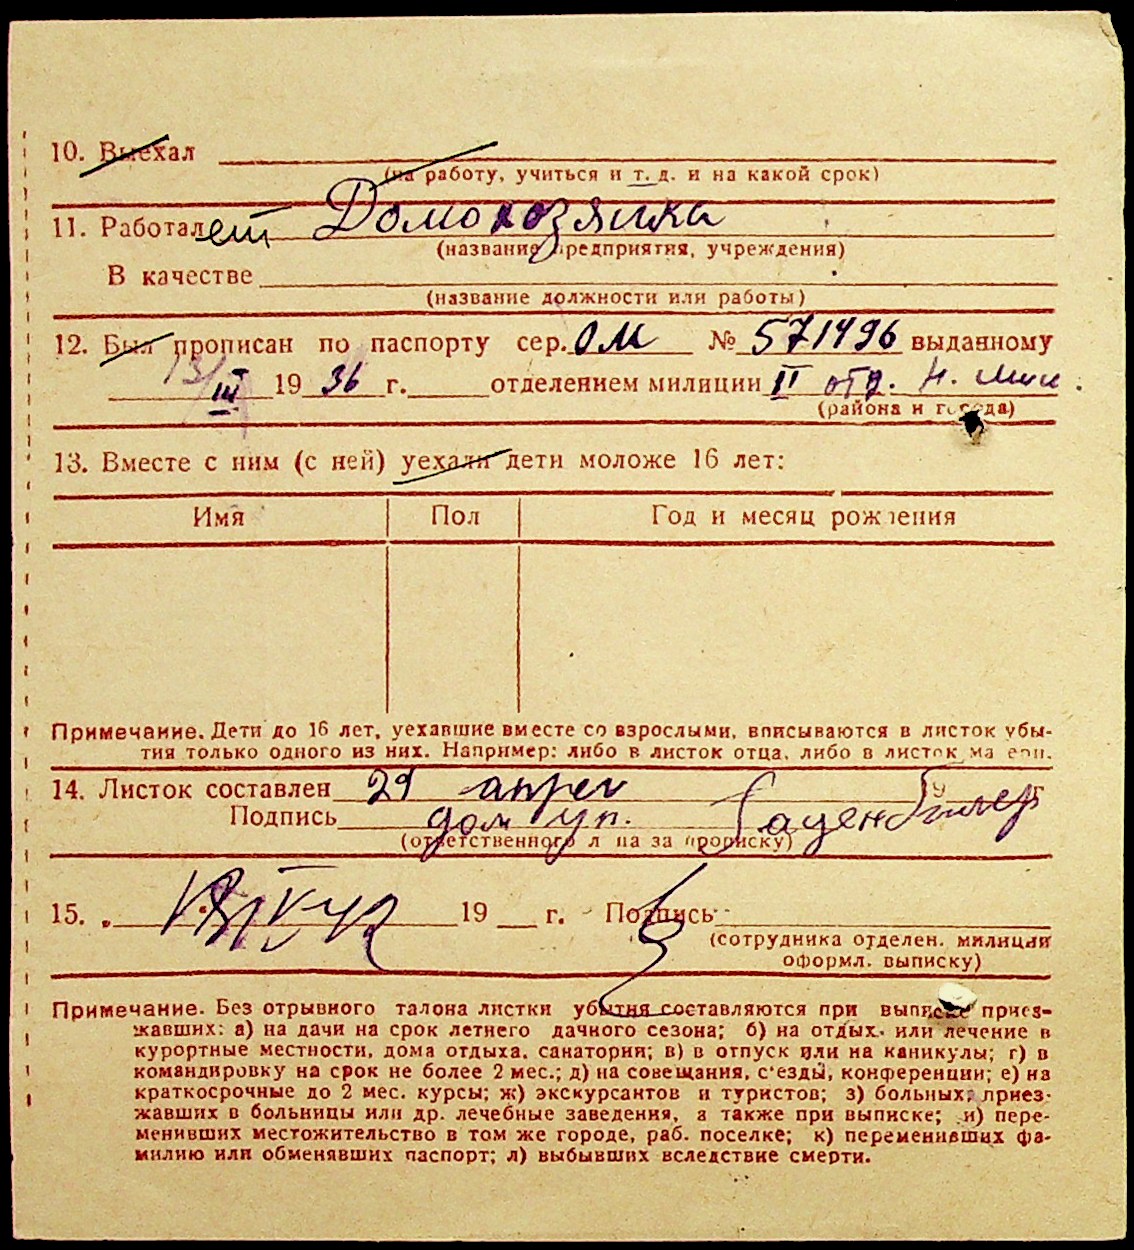 10. Выехал
(на работу, учиться и т. д. и на какой срок)
11. Работает Домохозяйка
(название предприятия, учреждения)
В качестве
(название должности или работы)
12. Был прописан по паспорту сер. ОМ № 571496 выданному
13/III 1936 г. отделением милиции II отд. н.
(района и города)
13. Вместе с ним (с ней) уехали дети моложе 16 лет:
Имя Пол Год и месяц рождения
Примечание. Дети до 16 лет, уехавшие вместе со взрослыми, вписываются в листок убы-
тия только одного из них. Например: либо в листок отца, либо в листок матери.
14. Листок составлен 29 апрел г
Подпись дом уп.
(ответственного лица за прописку)
15. „ 19 г. Подпись
(сотрудника отделен. милиции
оформл. выписку)
Примечание. Без отрывного талона листки убытия составляются при выписке приез-
жавших: а) на дачи на срок летнего дачного сезона; б) на отдых или лечение в
курортные местности, дома отдыха, санатории; в) в отпуск или на каникулы; г) в
командировку на срок не более 2 мес.; д) на совещания, с'езды, конференции; е) на
краткосрочные до 2 мес. курсы; ж) экскурсантов и туристов; з) больных, приез-
жавших в больницы или др. лечебные заведения, а также при выписке; и) пере-
менивших местожительство в том же городе, раб. поселке; к) переменивших фа-
милию или обменявших паспорт; л) выбывших вследствие смерти.